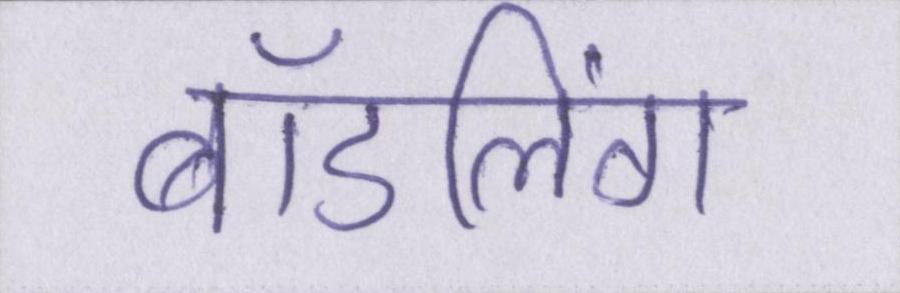 बॉडलिंग